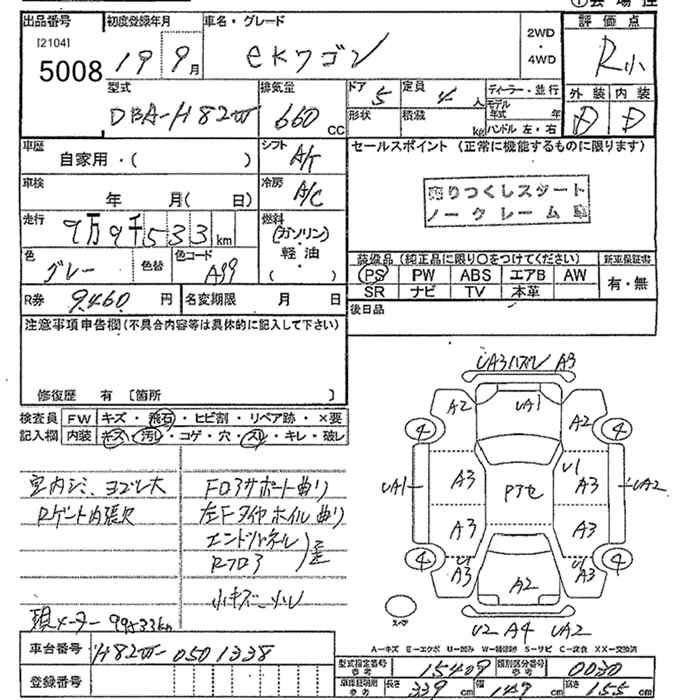 出品番号 初度登録年月 車名・グレード 2WD・4WD 評価点
[2104] 5008 19 9月 eKワゴン R小
型式 排気量 ドア 定員 ディーラー・並行 外装 内装
DBA-H82W 660 CC 5 4人 形状 積載 kg モデル年式 年 ハンドル 左・右 D D
車歴 自家用・( ) シフト A/T セールスポイント (正常に機能するものに限ります)
車検 年 月( 日) 冷房 A/C
売りつくしスタート
ノークレーム
走行 9万9千533km 燃料 (ガソリン)・軽油・( )
色 グレー 色替 色コード A99 装備品 (純正品に限り○をつけてください) 新車保証書
PS PW ABS エアB AW 有・無
R券 9460円 名変期限 月 日 SR ナビ TV 本革
注意事項申告欄(不具合内容等は具体的に記入して下さい) 後日品
修復歴 有 〔箇所 〕
検査員 FW キズ・飛石・ヒビ割・リペア跡・×要
記入欄 内装 キズ・汚レ・コゲ・穴・スレ・キレ・破レ
室内シミ、ヨゴレ大 Fロアサポート曲り
Rゲート内張欠 左Fタイヤホイル曲り
エンドパネル
Rフロア
小キズ・小凹
現メーター 99533km
UA3ハズレ A3
A2 UA1 A2
4 4
UA1 A3 Pアセ U1 A3 UA2
A3 A3
4 4
U1 A3 A2 U1 A3
スペア U2 A4 UA2
A－キズ E－エクボ U－凹み W－補修跡 S－サビ C－腐食 XX－交換済
車台番号 H82W-0501338
登録番号
型式指定番号 参考 15409 類別区分番号 参考 0030
長さ 339cm 幅 147cm 高さ 155cm